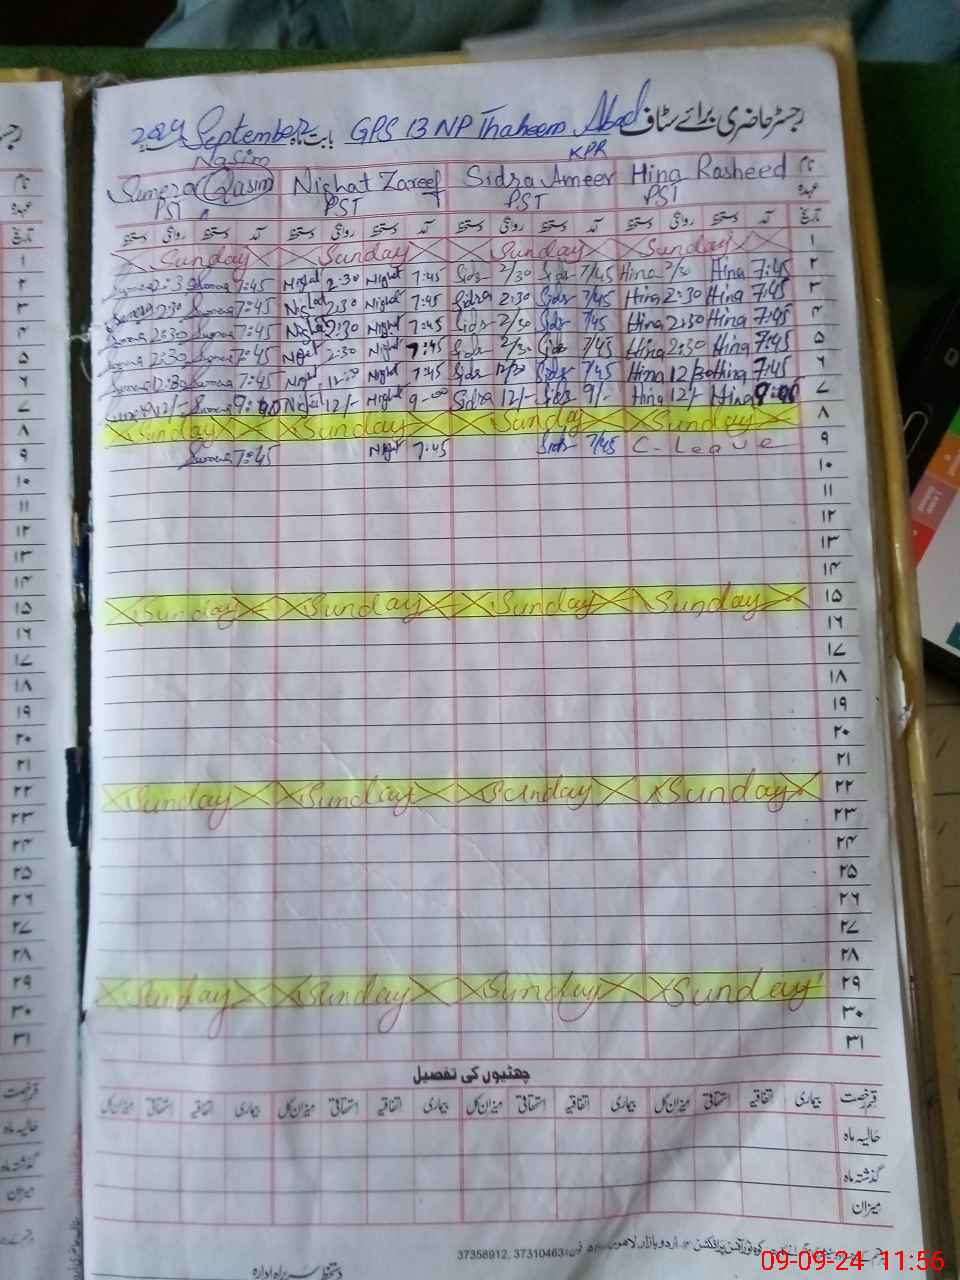 رجسٹر حاضری برائے سٹاف GPS 13 NP Thaheem Abad بابت ماہ September 2024
KPR
Nasim
نام Hina Rasheed Sidra Ameer Nighat Zareef Sumera Qasim
عہدہ PST PST PST PST
تاریخ آمد دستخط روانگی دستخط آمد دستخط روانگی دستخط آمد دستخط روانگی دستخط آمد دستخط روانگی دستخط
۱ Sunday Sunday Sunday Sunday
۲ 7:45 Hina 2/30 Hina 7/45 Sidr 2/30 Sidr 7:45 Nighat 2:30 Nighat 7:45 Sumera 2:30 Sumera
۳ 7:45 Hina 2:30 Hina 7/45 Sidr 2:30 Sidra 7:45 Nighat 2:30 Nighat 7:45 Sumera 2:30 Sumera
۴ 7:45 Hina 2:30 Hina 7/45 Sidr 2/30 Sidr 7:45 Nighat 2:30 Nighat 7:45 Sumera 2:30 Sumera
۵ 7:45 Hina 2:30 Hina 7/45 Sidr 2/30 Sidr 7:45 Nighat 2:30 Nighat 7:45 Sumera 2:30 Sumera
۶ 7:45 Hina 12/30 Hina 7/45 Sidr 12/30 Sidr 7:45 Nighat Nighat 7:45 Sumera 12:30 Sumera
۷ 9:00 Hina 12/- Hina 9/- Sidr 12/- Sidra 9-00 Nighat 12/- Nighat 9:00 Sumera 12/- Sumera
۸ Sunday Sunday Sunday Sunday
۹ C-Leave 7/45 Sidr 7:45 Nighat 7:45 Sumera
۱۰
۱۱
۱۲
۱۳
۱۴
۱۵ Sunday Sunday Sunday Sunday
۱۶
۱۷
۱۸
۱۹
۲۰
۲۱
۲۲ Sunday Sunday Sunday Sunday
۲۳
۲۴
۲۵
۲۶
۲۷
۲۸
۲۹ Sunday Sunday Sunday Sunday
۳۰
۳۱
چھٹیوں کی تفصیل
قسم رخصت بیماری اتفاقیہ استحقاقی میزان کل بیماری اتفاقیہ استحقاقی میزان کل بیماری اتفاقیہ استحقاقی میزان کل بیماری اتفاقیہ استحقاقی میزان کل
حالیہ ماہ
گذشتہ ماہ
میزان
اردو بازار، لاہور فون: 37310463, 37356912
دستخط سربراہ ادارہ
09-09-24 11:56